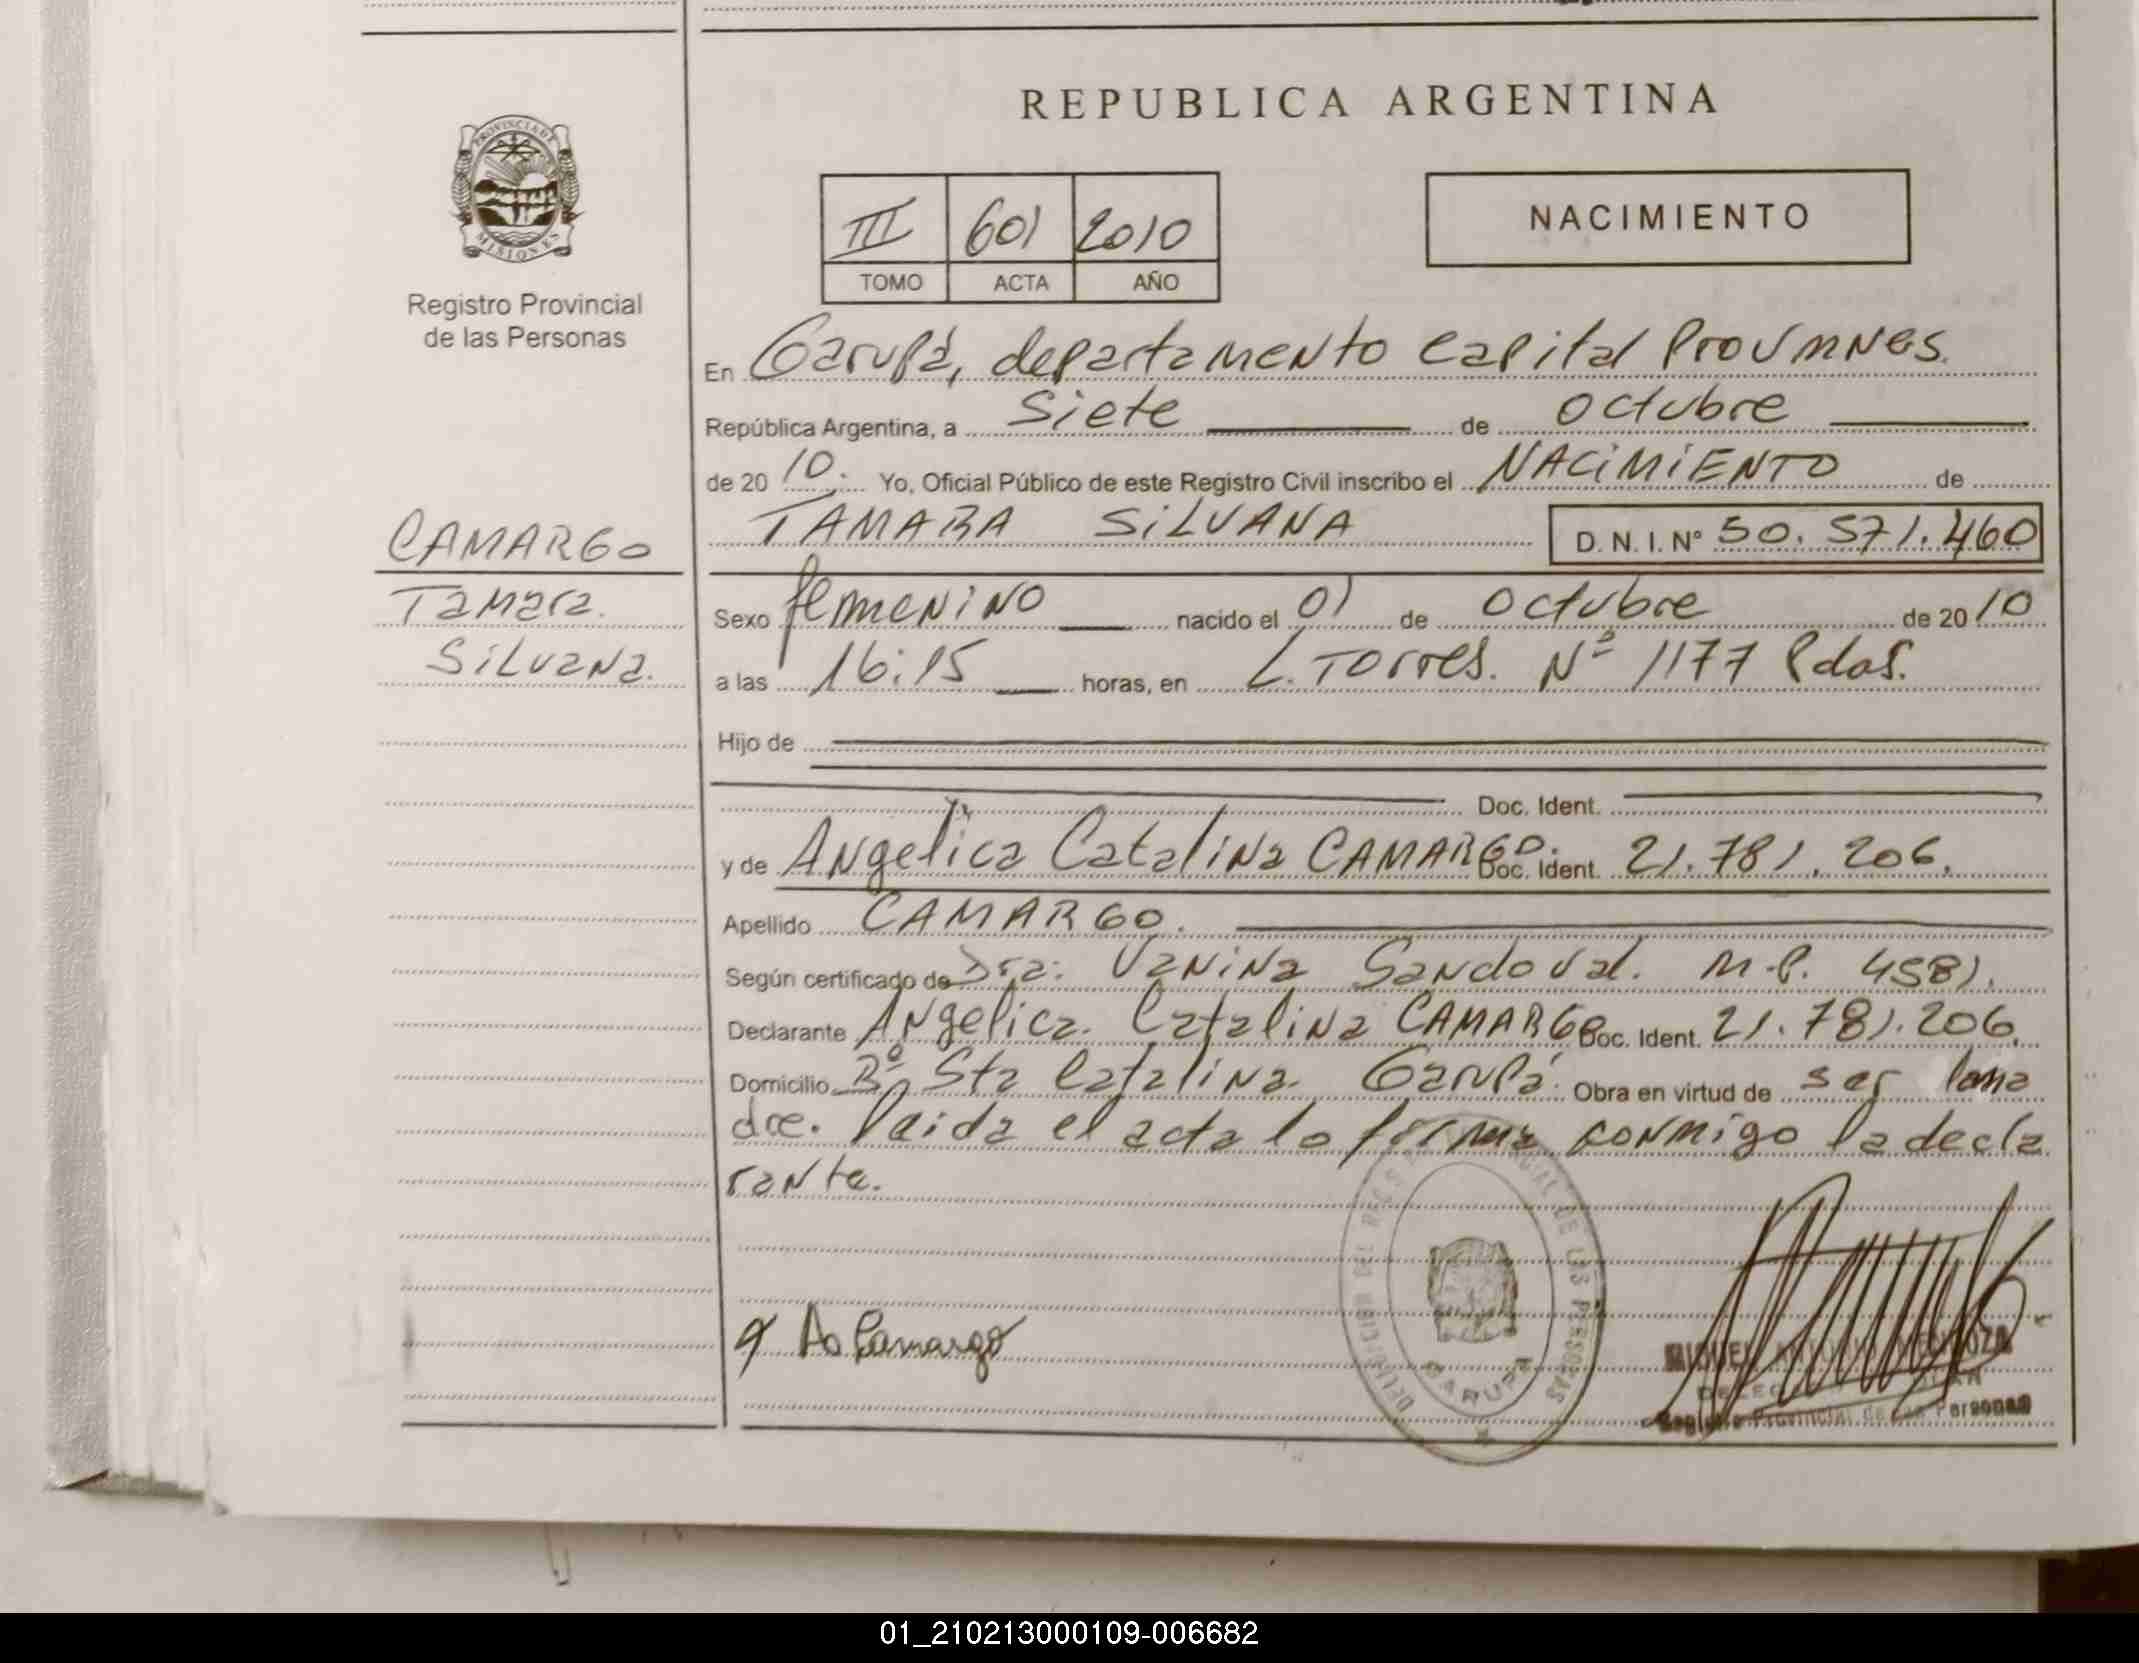 REPUBLICA ARGENTINA
PROVINCIA DE MISIONES
Registro Provincial
de las Personas
III 601 2010
TOMO ACTA AÑO
NACIMIENTO
En Garupá, departamento Capital Prov
República Argentina, a siete de octubre
de 2010. Yo, Oficial Público de este Registro Civil inscribo el NACIMIENTO de
TAMARA SILVANA D.N.I. Nº 50.571.460
CAMARGO
Tamara.
Silvana.
Sexo femenino nacido el 01 de octubre de 2010
a las 16:15 horas, en L. Torres. Nº 1177 Pdas.
Hijo de
Doc. Ident.
y de Angelica Catalina CAMARGO. Doc. Ident. 21.781.206.
Apellido CAMARGO.
Según certificado de Dra. Vanina Sandoval. M.P. 4581.
Declarante Angelica. Catalina CAMARGO Doc. Ident. 21.781.206.
Domicilio Bº Sta Catalina. Garupá. Obra en virtud de ser la ma
dre. leida el acta lo firma conmigo la decla
rante.
Camargo
DELEGACION DEL REGISTRO PROVINCIAL DE LAS PERSONAS
GARUPA
MIGUEL ANTONIO MENDOZA
Registro Provincial de las Personas
01_210213000109-006682